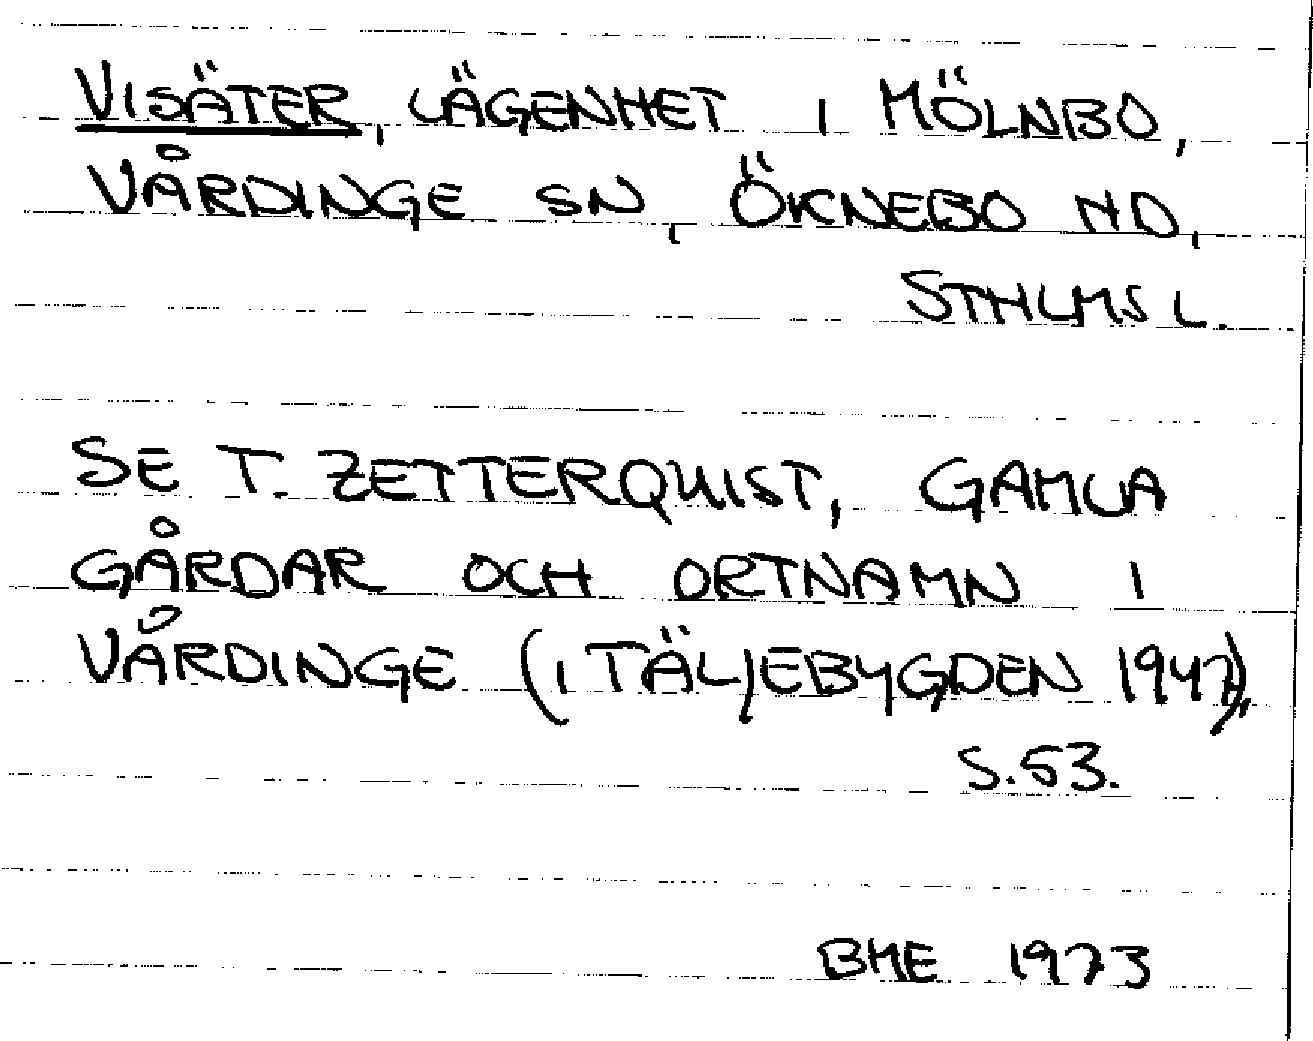 VISÄTER, LÄGENHET I MÖLNBO,
VÅRDINGE SN, ÖKNEBO HD,
STHLMS L.
SE T. ZETTERQUIST, GAMLA
GÅRDAR OCH ORTNAMN I
VÅRDINGE (I TÄLJEBYGDEN 1947),
S. 53.
BME 1973